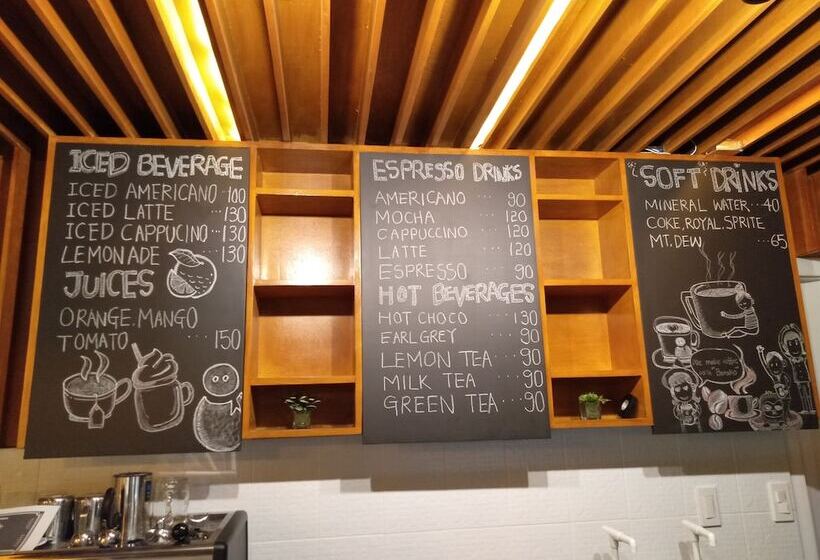 ICED BEVERAGE
ICED AMERICANO ·· 100
ICED LATTE ··· 130
ICED CAPPUCINO ·· 130
LEMONADE ··· 130
JUICES
ORANGE. MANGO
TOMATO ···· 150
ESPRESSO DRINKS
AMERICANO ··· 90
MOCHA ··· 120
CAPPUCCINO ··· 120
LATTE ··· 120
ESPRESSO ··· 90
HOT BEVERAGES
HOT CHOCO ··· 130
EARL GREY ··· 90
LEMON TEA ··· 90
MILK TEA ··· 90
GREEN TEA ···· 90
"SOFT" DRINKS
MINERAL WATER ·· 40
COKE, ROYAL, SPRITE
MT. DEW ··· 65
We make coffee
with